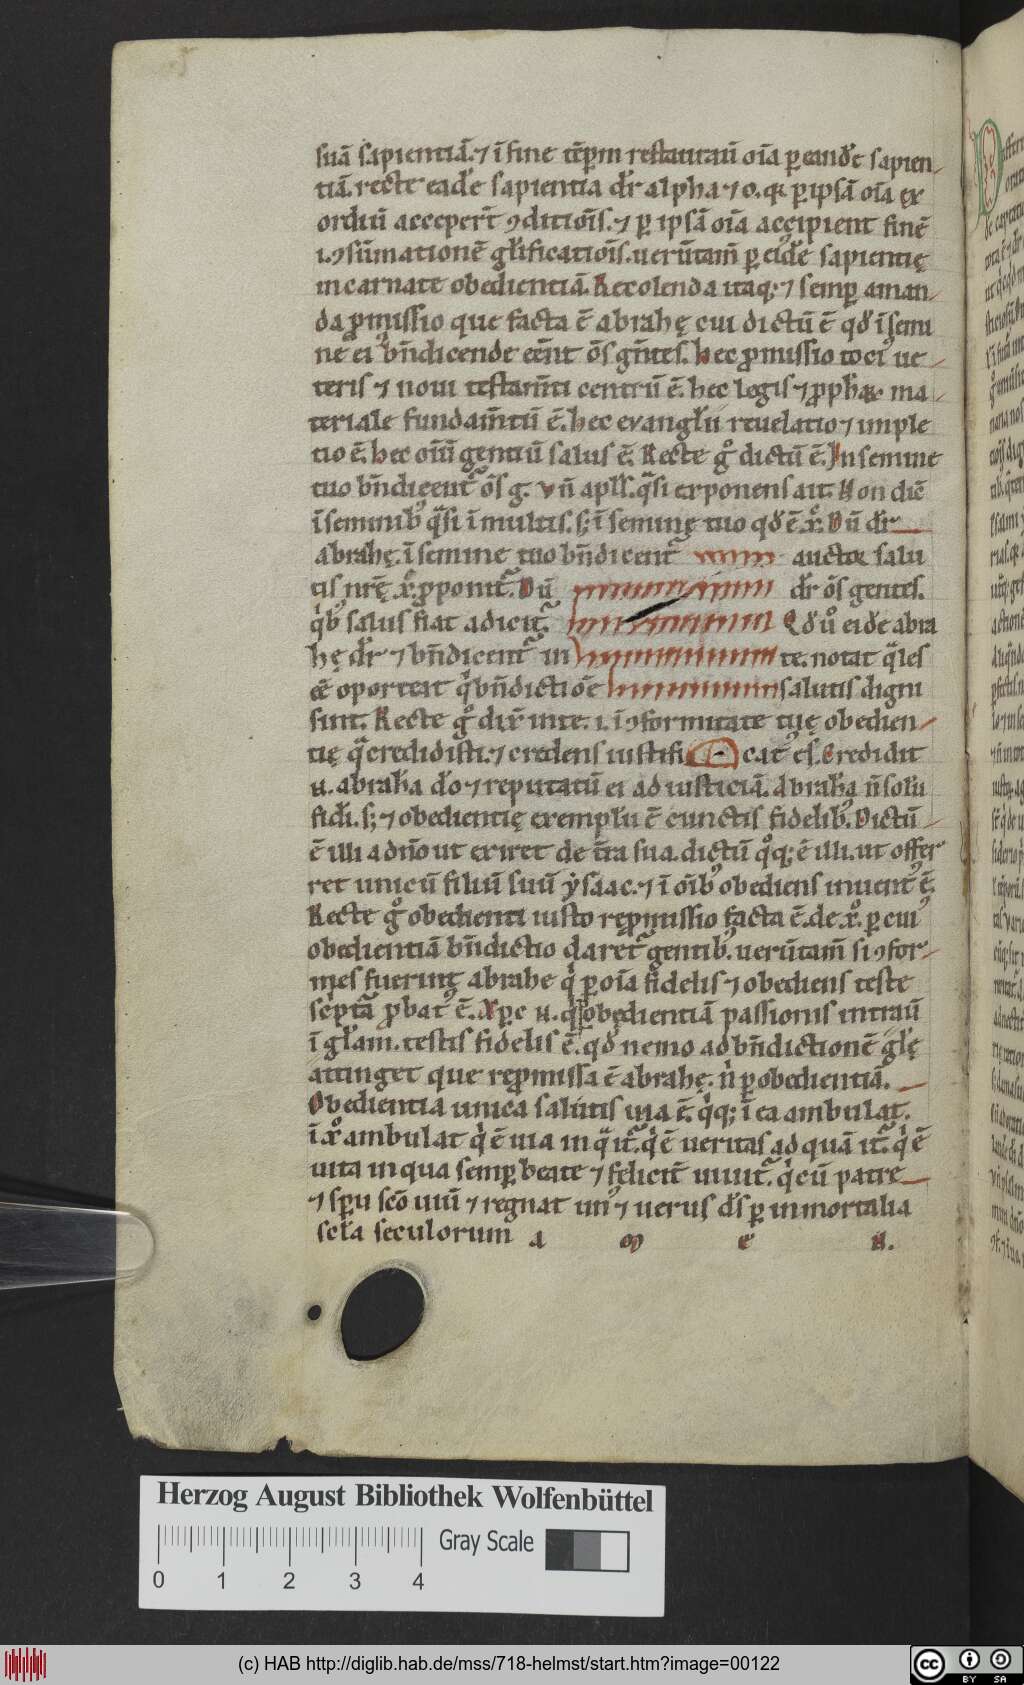 suā sapientiā. ⁊ ī fine tēp̄m restaurauī oīa ꝑ eandē sapien
tiā. recte eadē sapientia dr̄ alpha ⁊ o. qꝛ ꝑ ipsā oīa ex
ordiū acceper̄t ꝯditiōis. ⁊ ꝑ ipsā oīa accipient finē
.i. ꝯsūmationē gl̄ificatiōis. uerūtam̄ ꝑ eiꝰdē sapientię
incarnate obedientiā. Recolenda itaqꝫ ⁊ semꝑ aman
da ꝓmissio que facta ē abrahę cui dictū ē qd̄ ī semi
ne eiꝰ bn̄dicende eēnt ōs gn̄tes. hec ꝓmissio tociꝰ ue
teris ⁊ noui testam̄ti centrū ē. hec legis ⁊ ꝓph̄aꝝ ma
teriale fundam̄tū ē. hec evangl̄ii reuelatio ⁊ imple
tio ē. hec oīū gentiū salus ē. Recte gͦ dictū ē. In semine
tuo bn̄dicent̄ ōs g. vn̄ apl̄s. qͣsi exponens ait. Non dic̄
ī seminibꝰ qͣsi ī multis. sꝫ ī seminę tuo qd̄ ē xͦ. Dū dr̄
abrahę. ī semine tuo bn̄dicent̄ auctoꝛ salu
tis nrę̄ .xͦ. ꝓponit̄. Dū dr̄ ōs gentes.
qͥbꝰ salus fiat adicit̄. Qd̄ uͦ eidē abra
hę dr̄ ⁊ bn̄dicent̄ in te. notat qͣles
eē oporteat qͥ bn̄dictiōe salutis digni
sint. Recte gͦ dix̄ in te. .i. ī ꝯformitate tuę obedien
tię qͣ credidisti. ⁊ credens iustifi cat̄ eſ. Credidit
.n. abrah̄a dō ⁊ reputatū ei ad iusticiā. Abrah̄a n̄ solū
fidī. sꝫ ⁊ obedientię exemplū ē cunctis fidelibꝰ. Dictū
ē illi a dn̄o ut exiret de tr̄a sua. dictū qͦqꝫ ē illi. ut offer
ret unicū filiū suū ẏsaac. ⁊ ī oībꝰ obediens inuentꝰ ē.
Recte gͦ obedienti iusto reꝓmissio facta ē. de xͦ. ꝑ cuiꝰ
obedientiā bn̄dictio daret̄ gentibꝰ. uerūtam̄ si ꝯfor
mes fuerint abrahe qͥ ꝑ oīa fidelis ⁊ obediens teste
sc̄ptā ꝓbatꝰ ē. Xp̄c .n. ꝑ obedientiā passionis intrauī
ī gl̄am. testis fidelis ē. qd̄ nemo ad bn̄dictionē gl̄ę
attinget que reꝓmissa ē abrahę. nͥ ꝑ obedientiā.
Obedientia unica salutis uia ē. qͥqꝫ ī ea ambulat.
ī xͦ ambulat qͥ ē uia in qͣ it̄. qͥ ē ueritas ad quā it̄. qͥ ē
uita in qua semꝑ beate ⁊ felicit̄ uiuit̄. qͥ cū patre
⁊ sp̄u scō uiuī ⁊ regnat unꝰ ⁊ uerus d̄s ꝑ inmortalia
sc̄la seculorum a m e n.
Herzog August Bibliothek Wolfenbüttel
Gray Scale
0 1 2 3 4
(c) HAB http://diglib.hab.de/mss/718-helmst/start.htm?image=00122
cc BY SA